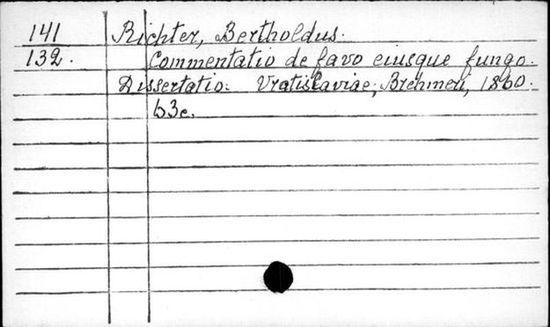 141 Richter, Bertholdus.
132. Commentatio de favo eiusque fungo.
Dissertatio. Vratislaviae, Brehmeri, 1860.